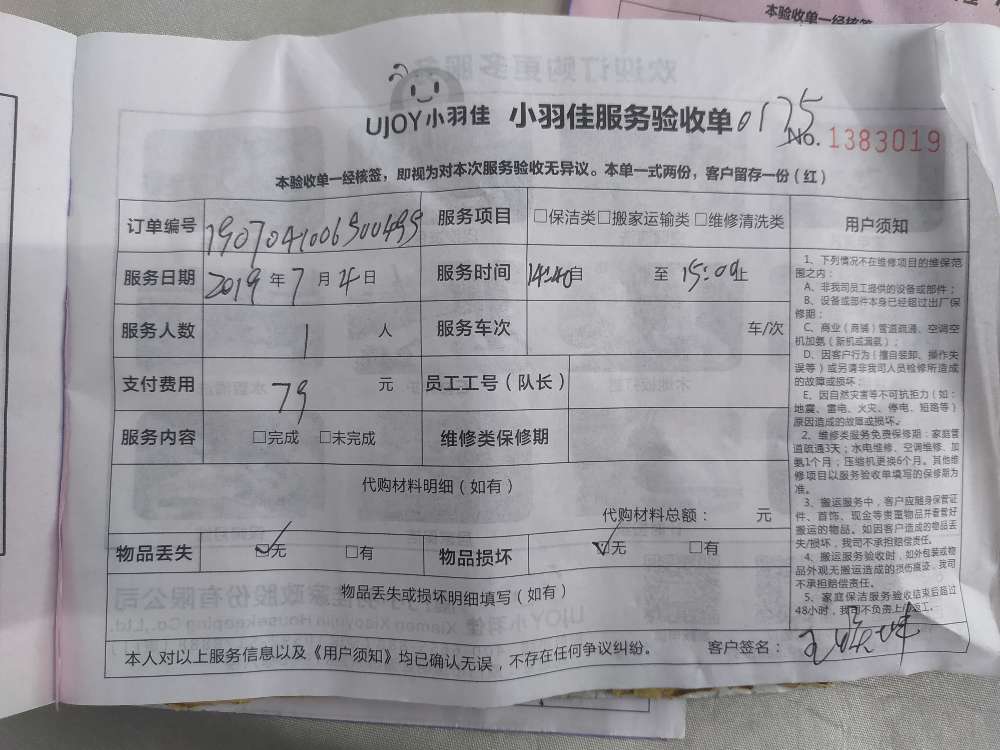 本验收单一经核签
UJOY小羽佳 小羽佳服务验收单 0175
No. 1383019
本验收单一经核签，即视为对本次服务验收无异议。本单一式两份，客户留存一份（红）
订单编号 服务项目 □保洁类□搬家运输类□维修清洗类
服务日期 2019年7月4日 服务时间 14:40自 至 15:00止
服务人数 1人 服务车次 车/次
支付费用 79元 员工工号（队长）
服务内容 □完成 □未完成 维修类保修期
代购材料明细（如有）
代购材料总额： 元
物品丢失 ☑无 □有 物品损坏 ☑无 □有
物品丢失或损坏明细填写（如有）
本人对以上服务信息以及《用户须知》均已确认无误，不存在任何争议纠纷。 客户签名：
用户须知
1、下列情况不在维修项目的维保范
围之内：
A、非我司员工提供的设备或部件；
B、设备或部件本身已经超过出厂保
修期；
C、商业（商铺）管道疏通、空调空
机加氨（新机或漏氨）；
D、因客户行为（擅自装卸、操作失
误等）或另请非我司人员检修所造成
的故障或损坏；
E、因自然灾害等不可抗拒力（如：
地震、雷电、火灾、停电、短路等）
原因造成的故障或损坏。
2、维修类服务免费保修期：家庭管
道疏通3天；水电维修、空调维修、加
氨1个月；压缩机更换6个月。其他维
修项目以服务验收单填写的保修期为
准。
3、搬运服务中，客户应随身保管证
件、首饰、现金等贵重物品并看管好
搬运的物品。如因客户造成的物品丢
失/损坏，我司不承担赔偿责任。
4、搬运服务验收时，如外包装或物
品外观无搬运造成的损伤痕迹，我司
不承担赔偿责任。
5、家庭保洁服务验收结束后超过
48小时，我司不负责上门返工。